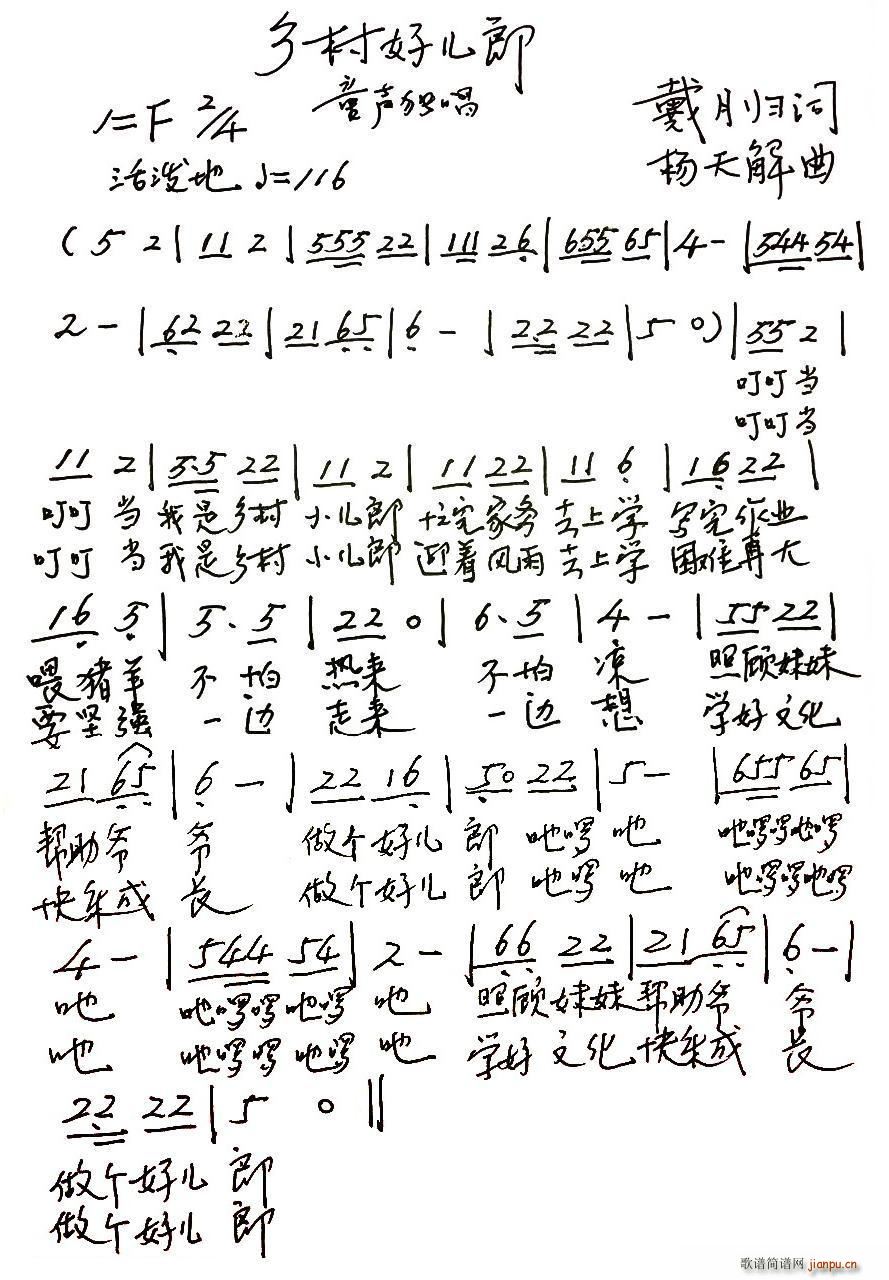 乡村好儿郎
童声独唱
1=F 2/4
戴月归词
活泼地 ♩=116
杨天解曲
( 5 2 | 11 2 | 555 22 | 111 26 | 655 65 | 4 - | 544 54 |
2 - | 62 22 | 21 65 | 6 - | 2·2 22 | 5 0 ) | 55 2 |
叮叮当
叮叮当
11 2 | 5·5 22 | 11 2 | 11 22 | 11 6 | 16 22 |
叮叮 当 我是乡村 小儿郎 忙完家务 去上学 写完作业
叮叮 当 我是乡村 小儿郎 迎着风雨 去上学 困难再大
16 5 | 5· 5 | 22 0 | 6· 5 | 4 - | 55 22 |
喂猪羊 不 怕 热来 不怕 凉 照顾妹妹
要坚强 一 边 走来 一边 想 学好文化
21 65 | 6 - | 22 16 | 50 22 | 5 - | 655 65 |
帮助爷 爷 做个好儿 郎 吔啰 吔 吔啰啰吔啰
快乐成 长 做个好儿 郎 吔啰 吔 吔啰啰吔啰
4 - | 544 54 | 2 - | 66 22 | 21 65 | 6 - |
吔 吔啰啰吔啰 吔 照顾妹妹 帮助爷 爷
吔 吔啰啰吔啰 吔 学好文化 快乐成 长
2·2 22 | 5 0 ‖
做个好儿 郎
做个好儿 郎
歌谱简谱网 jianpu.cn